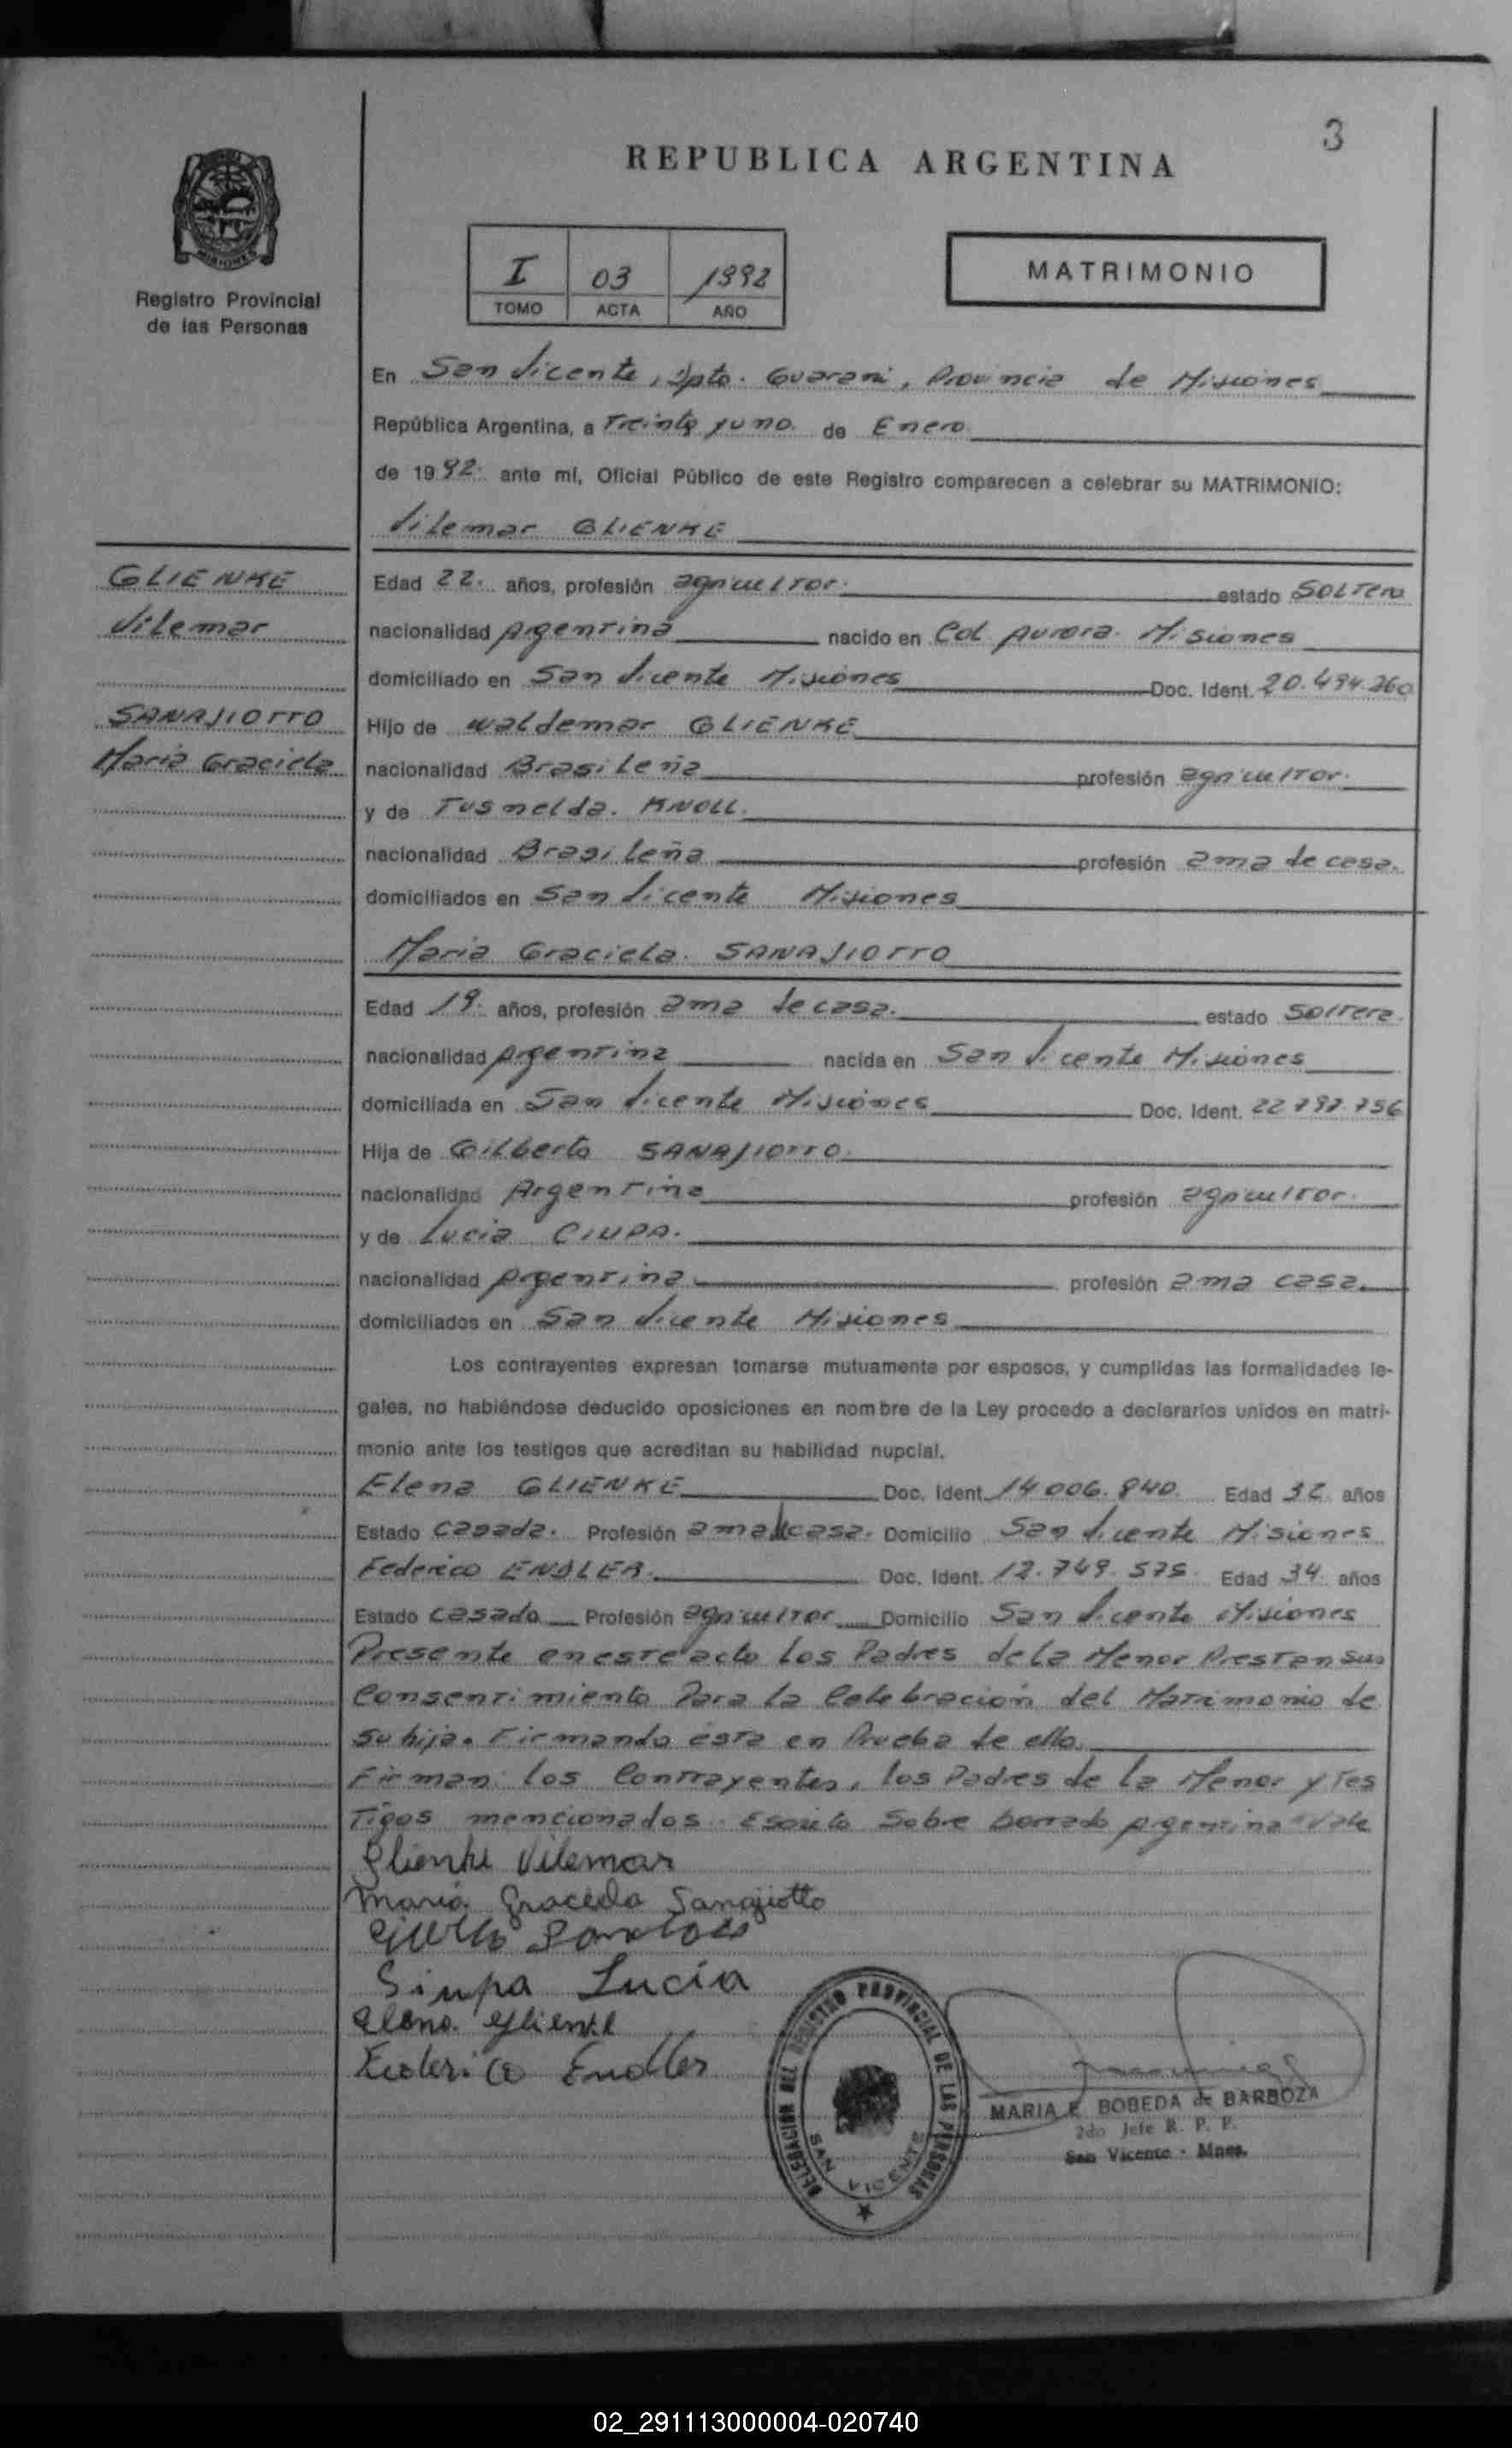 3
REPUBLICA ARGENTINA
I 03 1992
TOMO ACTA AÑO
MATRIMONIO
MISIONES
Registro Provincial
de las Personas
En San Vicente, Dpto. Guarani, Provincia de Misiones
República Argentina, a Treinta y uno de Enero
de 1992. ante mí, Oficial Público de este Registro comparecen a celebrar su MATRIMONIO:
Vilemar GLIENKE
GLIENKE
Vilemar
SANAJIOTTO
Maria Graciela
Edad 22. años, profesión agricultor. estado SOLTERO
nacionalidad Argentina nacido en Col. Aurora. Misiones
domiciliado en San Vicente Misiones Doc. Ident. 20.494.260
Hijo de Waldemar GLIENKE
nacionalidad Brasileña profesión agricultor.
y de Tusnelda. KNOLL.
nacionalidad Brasileña profesión ama de casa.
domiciliados en San Vicente Misiones
Maria Graciela. SANAJIOTTO
Edad 19. años, profesión ama de casa. estado Soltera.
nacionalidad Argentina nacida en San Vicente Misiones
domiciliada en San Vicente Misiones Doc. Ident. 22.797.756
Hija de Gilberto SANAJIOTTO.
nacionalidad Argentina profesión agricultor.
y de Lucia CIUPA.
nacionalidad Argentina profesión ama casa.
domiciliados en San Vicente Misiones
Los contrayentes expresan tomarse mutuamente por esposos, y cumplidas las formalidades le-
gales, no habiéndose deducido oposiciones en nombre de la Ley procedo a declararlos unidos en matri-
monio ante los testigos que acreditan su habilidad nupcial.
Elena GLIENKE Doc. Ident. 14.006.840. Edad 32 años
Estado Casada. Profesión ama de casa. Domicilio San Vicente Misiones
Federico ENDLER. Doc. Ident. 12.749.575. Edad 34 años
Estado Casado Profesión agricultor Domicilio San Vicente Misiones
Presente en este acto los Padres de la Menor Prestan sus
Consentimiento Para la Celebración del Matrimonio de
su hija. Firmando esta en Prueba de ello.
Firman los Contrayentes, los Padres de la Menor y Tes
Tigos mencionados. Escrito Sobre borrado Argentina Vale
Glienke Vilemar
Maria Graciela Sanajiotto
Siupa Lucía
Elena Glienke
Federico Endler
DELEGACION DEL REGISTRO PROVINCIAL DE LAS PERSONAS
SAN VICENTE
MARIA E. BOBEDA de BARBOZA
2do Jefe R. P. P.
San Vicente - Mnes.
02_291113000004-020740